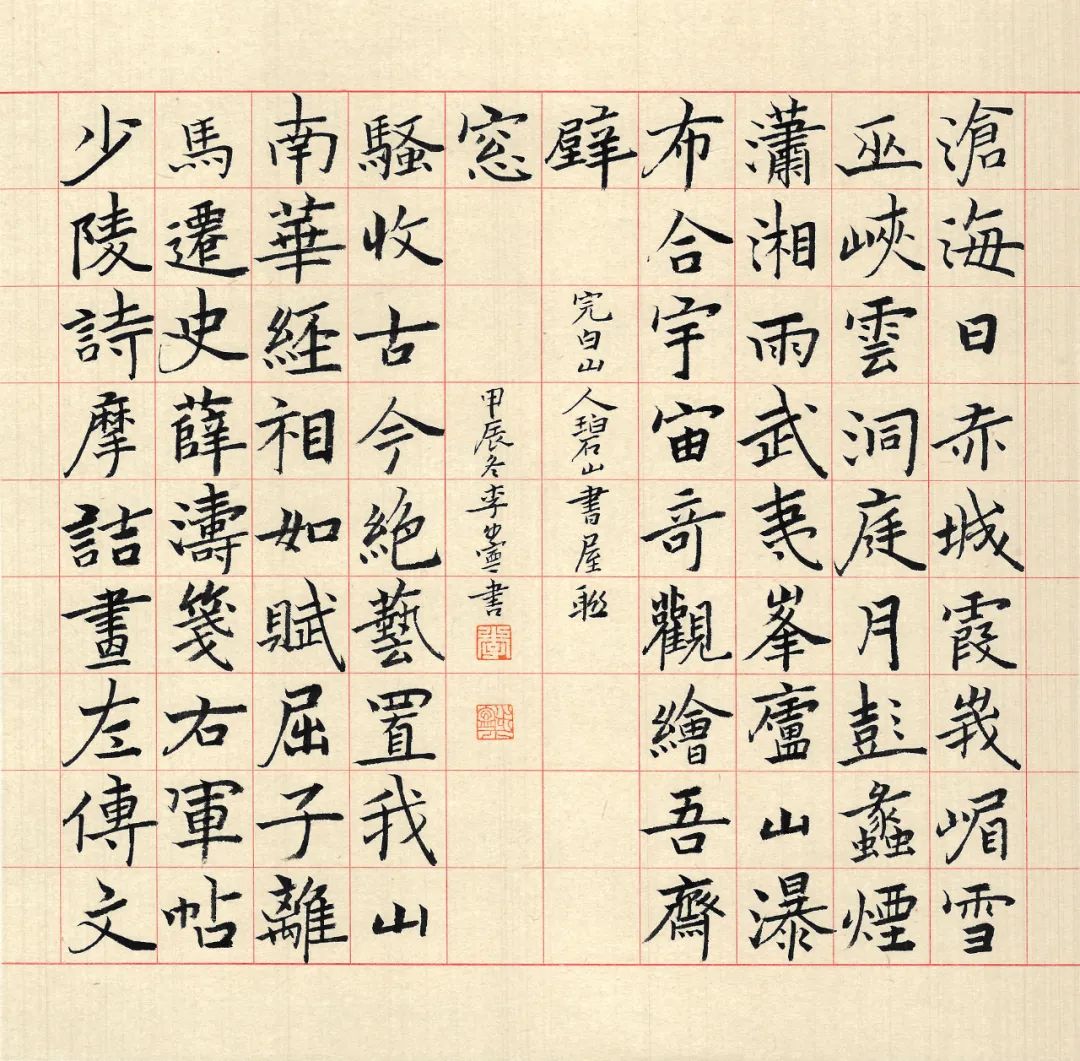 滄海日赤城霞峩嵋雪
巫峽雲洞庭月彭蠡煙
瀟湘雨武夷峯廬山瀑
布合宇宙竒觀繪吾齋
壁
完白山人碧山書屋聯
少陵詩摩詰畫左傳文
馬遷史薛濤箋右軍帖
南華經相如賦屈子離
騷收古今絕藝置我山
窓
甲辰冬李寧書